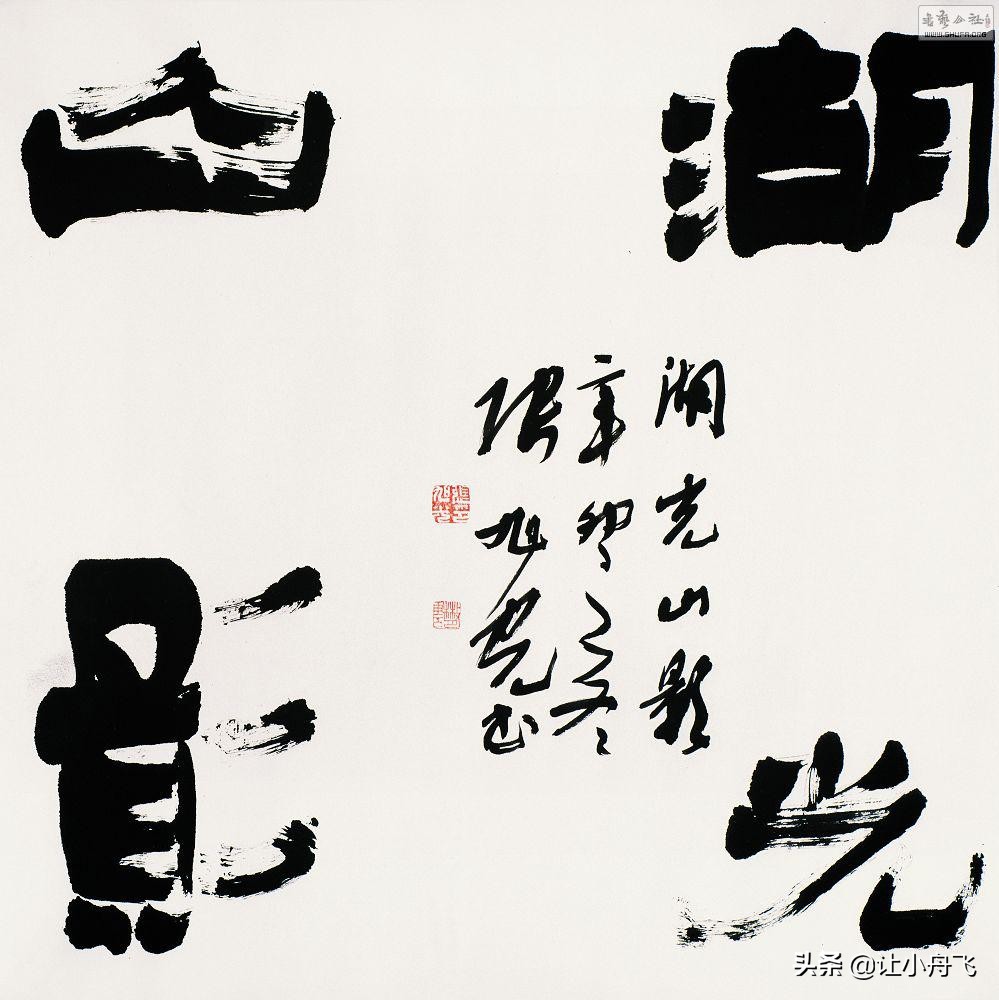 湖光
山影
湖光山影
辛卯之冬
张旭光书
书艺公社
WWW.SHUFA.ORG
头条 @让小舟飞